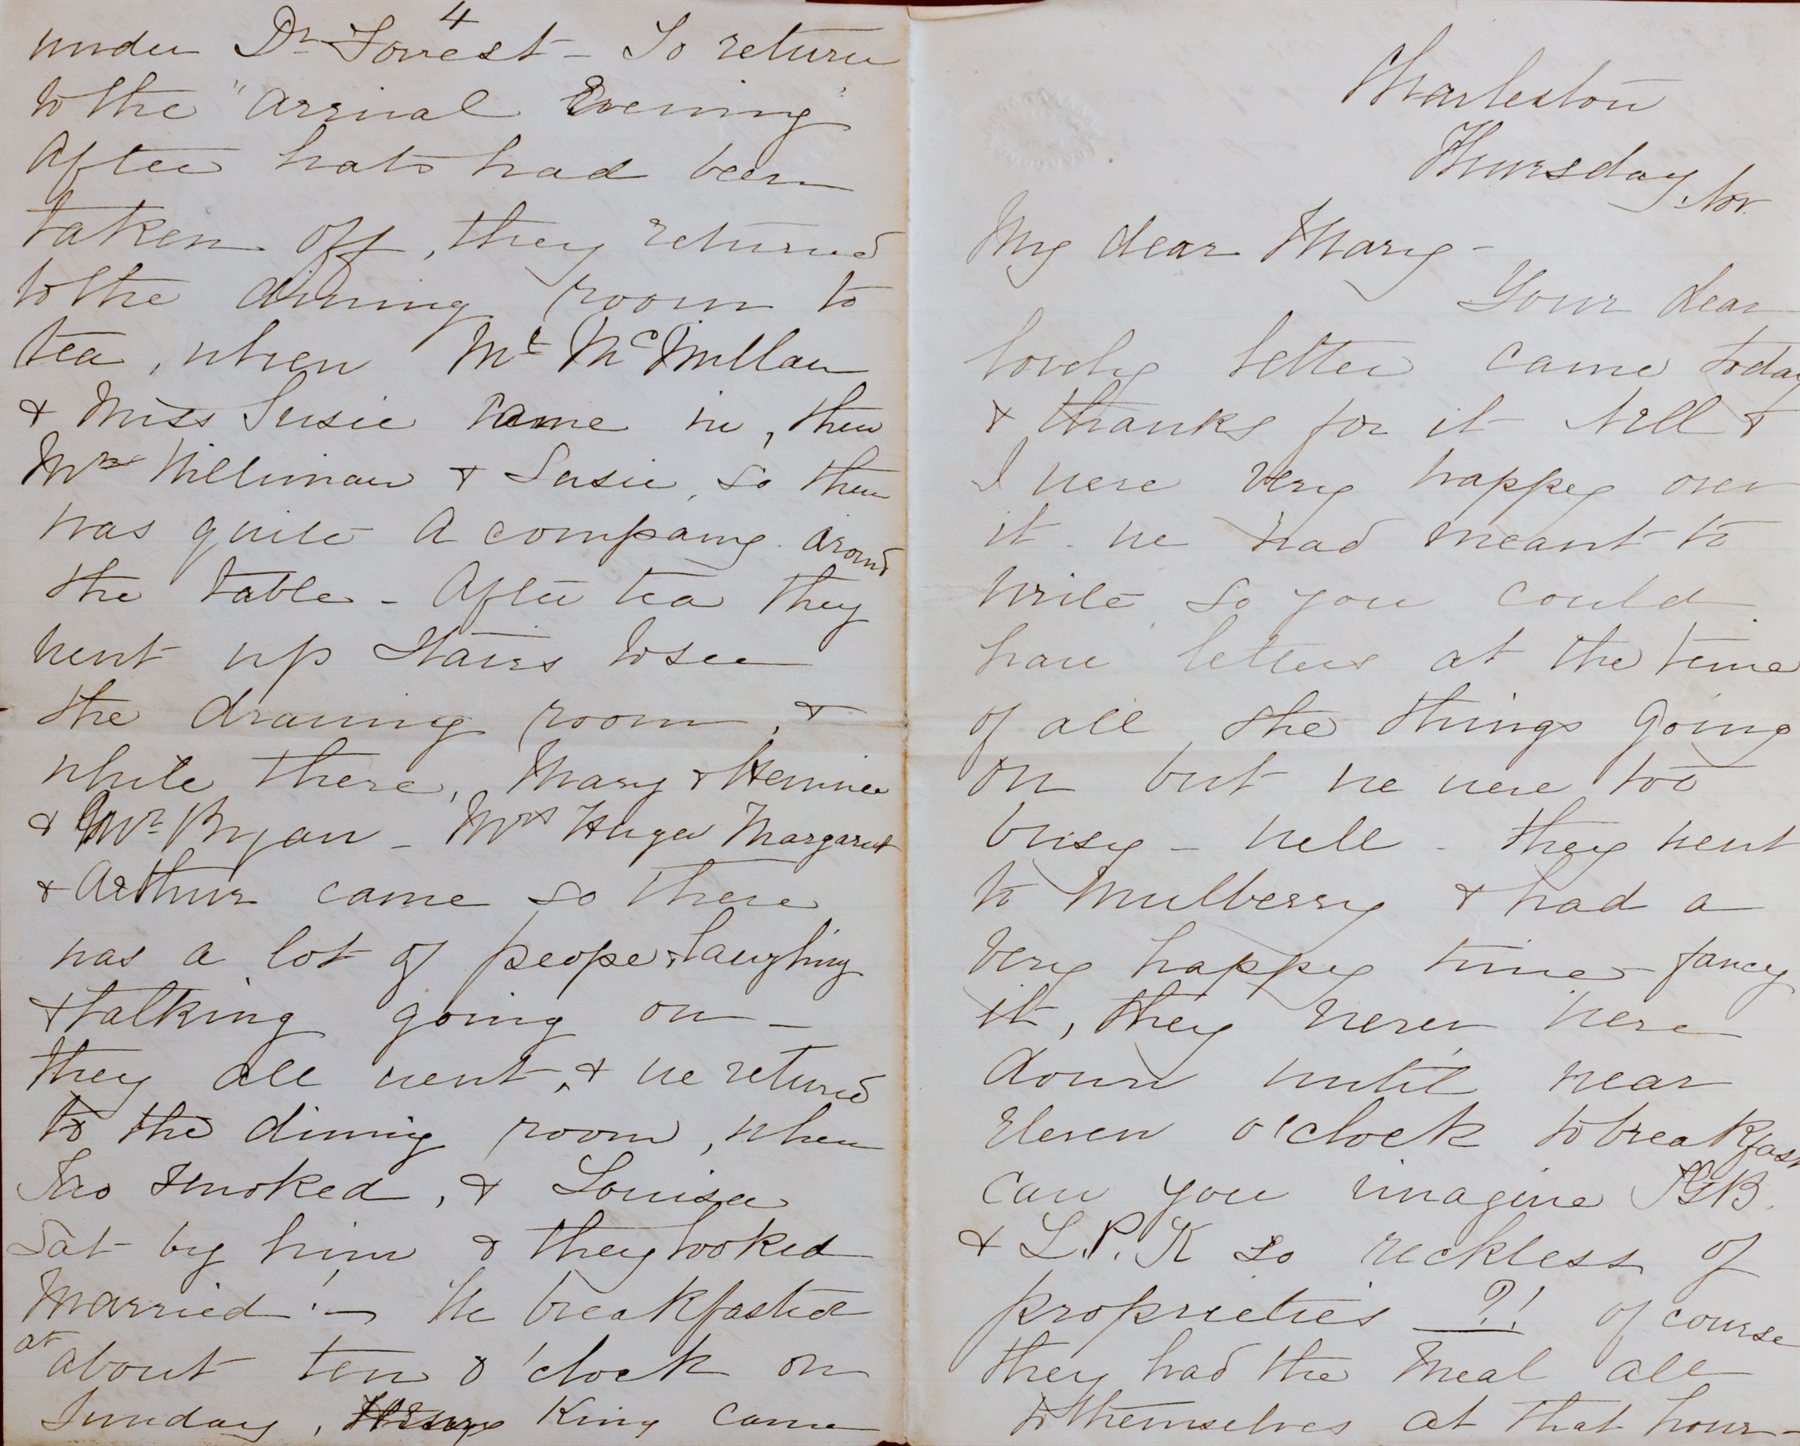 4
under Dr Forrest - To return
to the "arrival Evening"
After hats had been
taken off, they returned
to the dining room to
tea, when Mr McMillan
& Miss Susie came in, then
Mrs Williman & Susie, so there
was quite a company around
the table - After tea they
went up stairs to see
the drawing room, &
while there, Mary & Heminee
& Mr Bryan - Mrs Huger Margaret
& Arthur came so there
was a lot of peope & laughing
& talking going on -
they all went, & we returned
to the dining room, when
smoked, & Louisa
sat by him & they looked
married! - We breakfasted
at about ten o'clock on
Sunday, Henry King came
Charleston
Thursday, Nov.
My dear Mary -
Your dear
lovely letter came today
& thanks for it Nell &
I were very happy over
it - we had meant to
write so you could
have letters at the time
of all the things going
on but we were too
busy - well - they went
to Mulberry & had a
very happy time - fancy
it, they never were
down until near
eleven o'clock to breakfast
can you imagine B.
& L.P.K so reckless of
proprieties ?! of course
they had the meal all
to themselves at that hour -